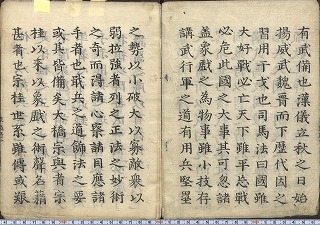 有武備也漢儀立秋之日始
揚威武魏晋而下歷代因之
習用干戈也司馬法曰國雖
大好戰必亡天下雖平忘戰
必危此國之大事其可忽諸
盖象戲之為物事雖小技存
講武行軍之道有用兵堅呈
之勢以小破大以寡離衆以
弱拉強者列之正法之妙術
之奇而得諸心擧諸目應諸
手者也戲兵之道飾法之要
或其皆備矣大橋宗與者宗
桂以來以象戲之術聲名籍
甚者也宗桂世系雖傳或艱